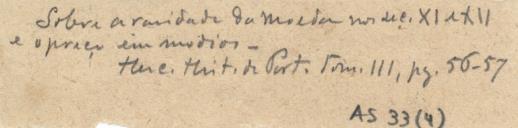 Sobre a raridade da moeda nos sec. XI e XII
e o preço em modios –
Herc. Hist. de Port. Tom. III, pg. 56-57
AS 33(4)